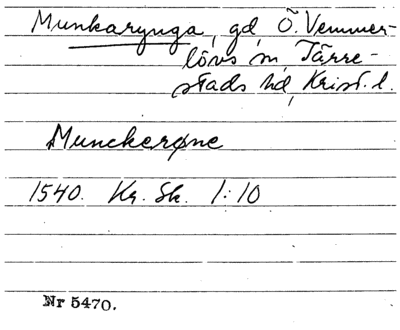 Munkarynga, gd, Ö. Vemmer-
lövs sn, Järre-
stads hd, Krist. l.
Munckerøne
1540. Kr. Sk. 1:10
Nr 5470.